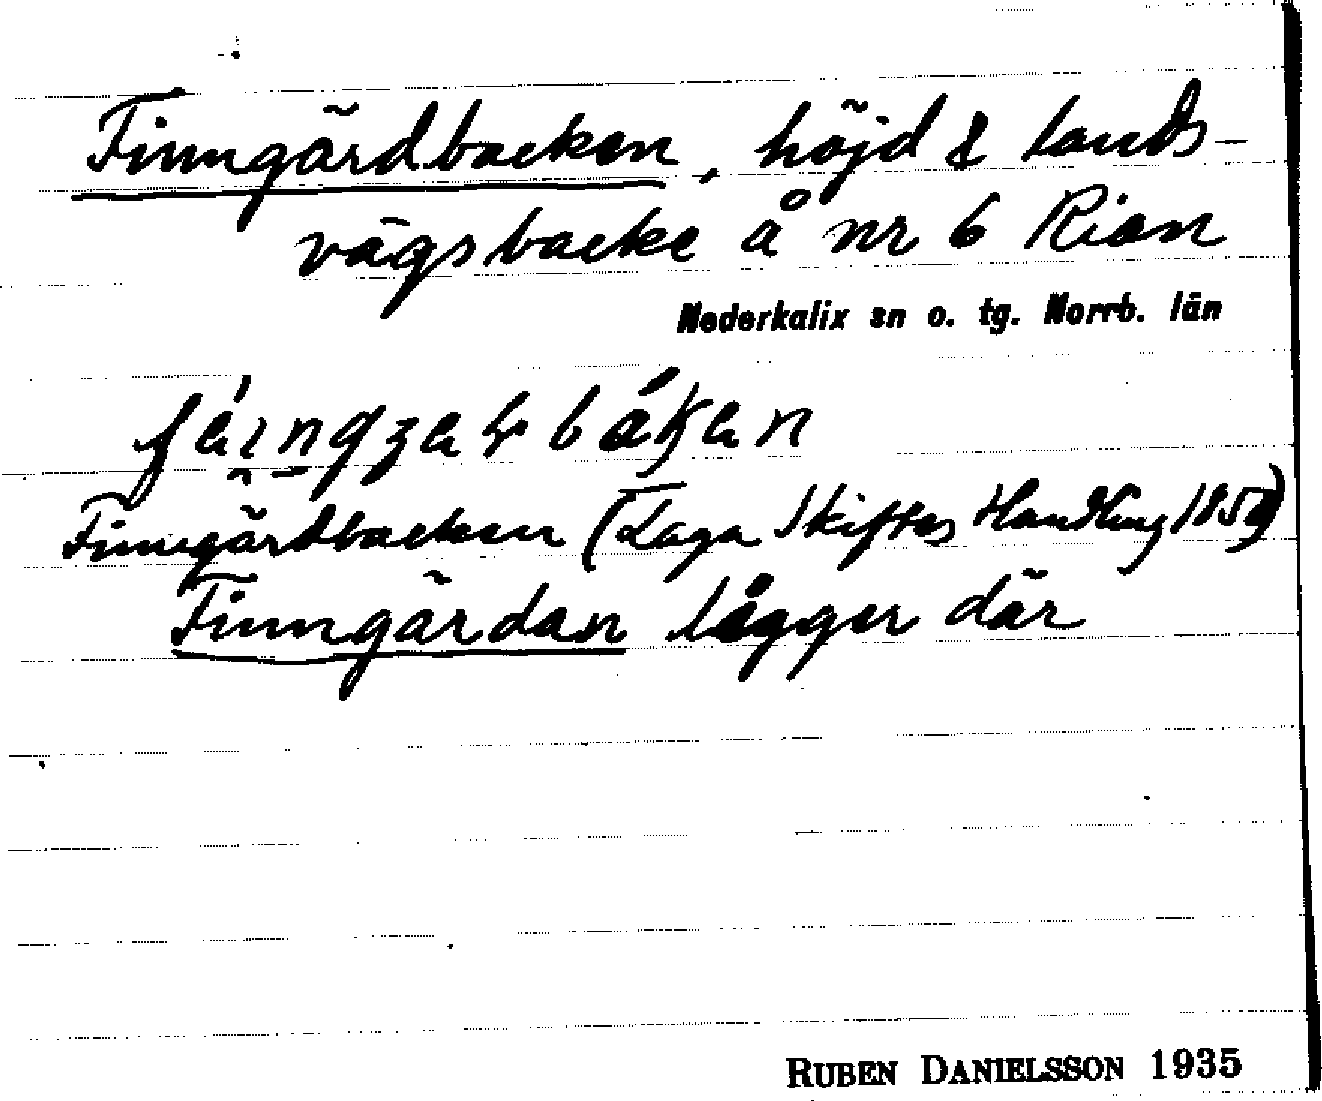 Finngärdbacken, höjd & lands-
vägsbacke å nr 6 Rian
Nederkalix sn o. tg. Norrb. län
Finngärdbacken (Laga Skiftes Handling
Finngärdan lägger där
RUBEN DANIELSSON 1935